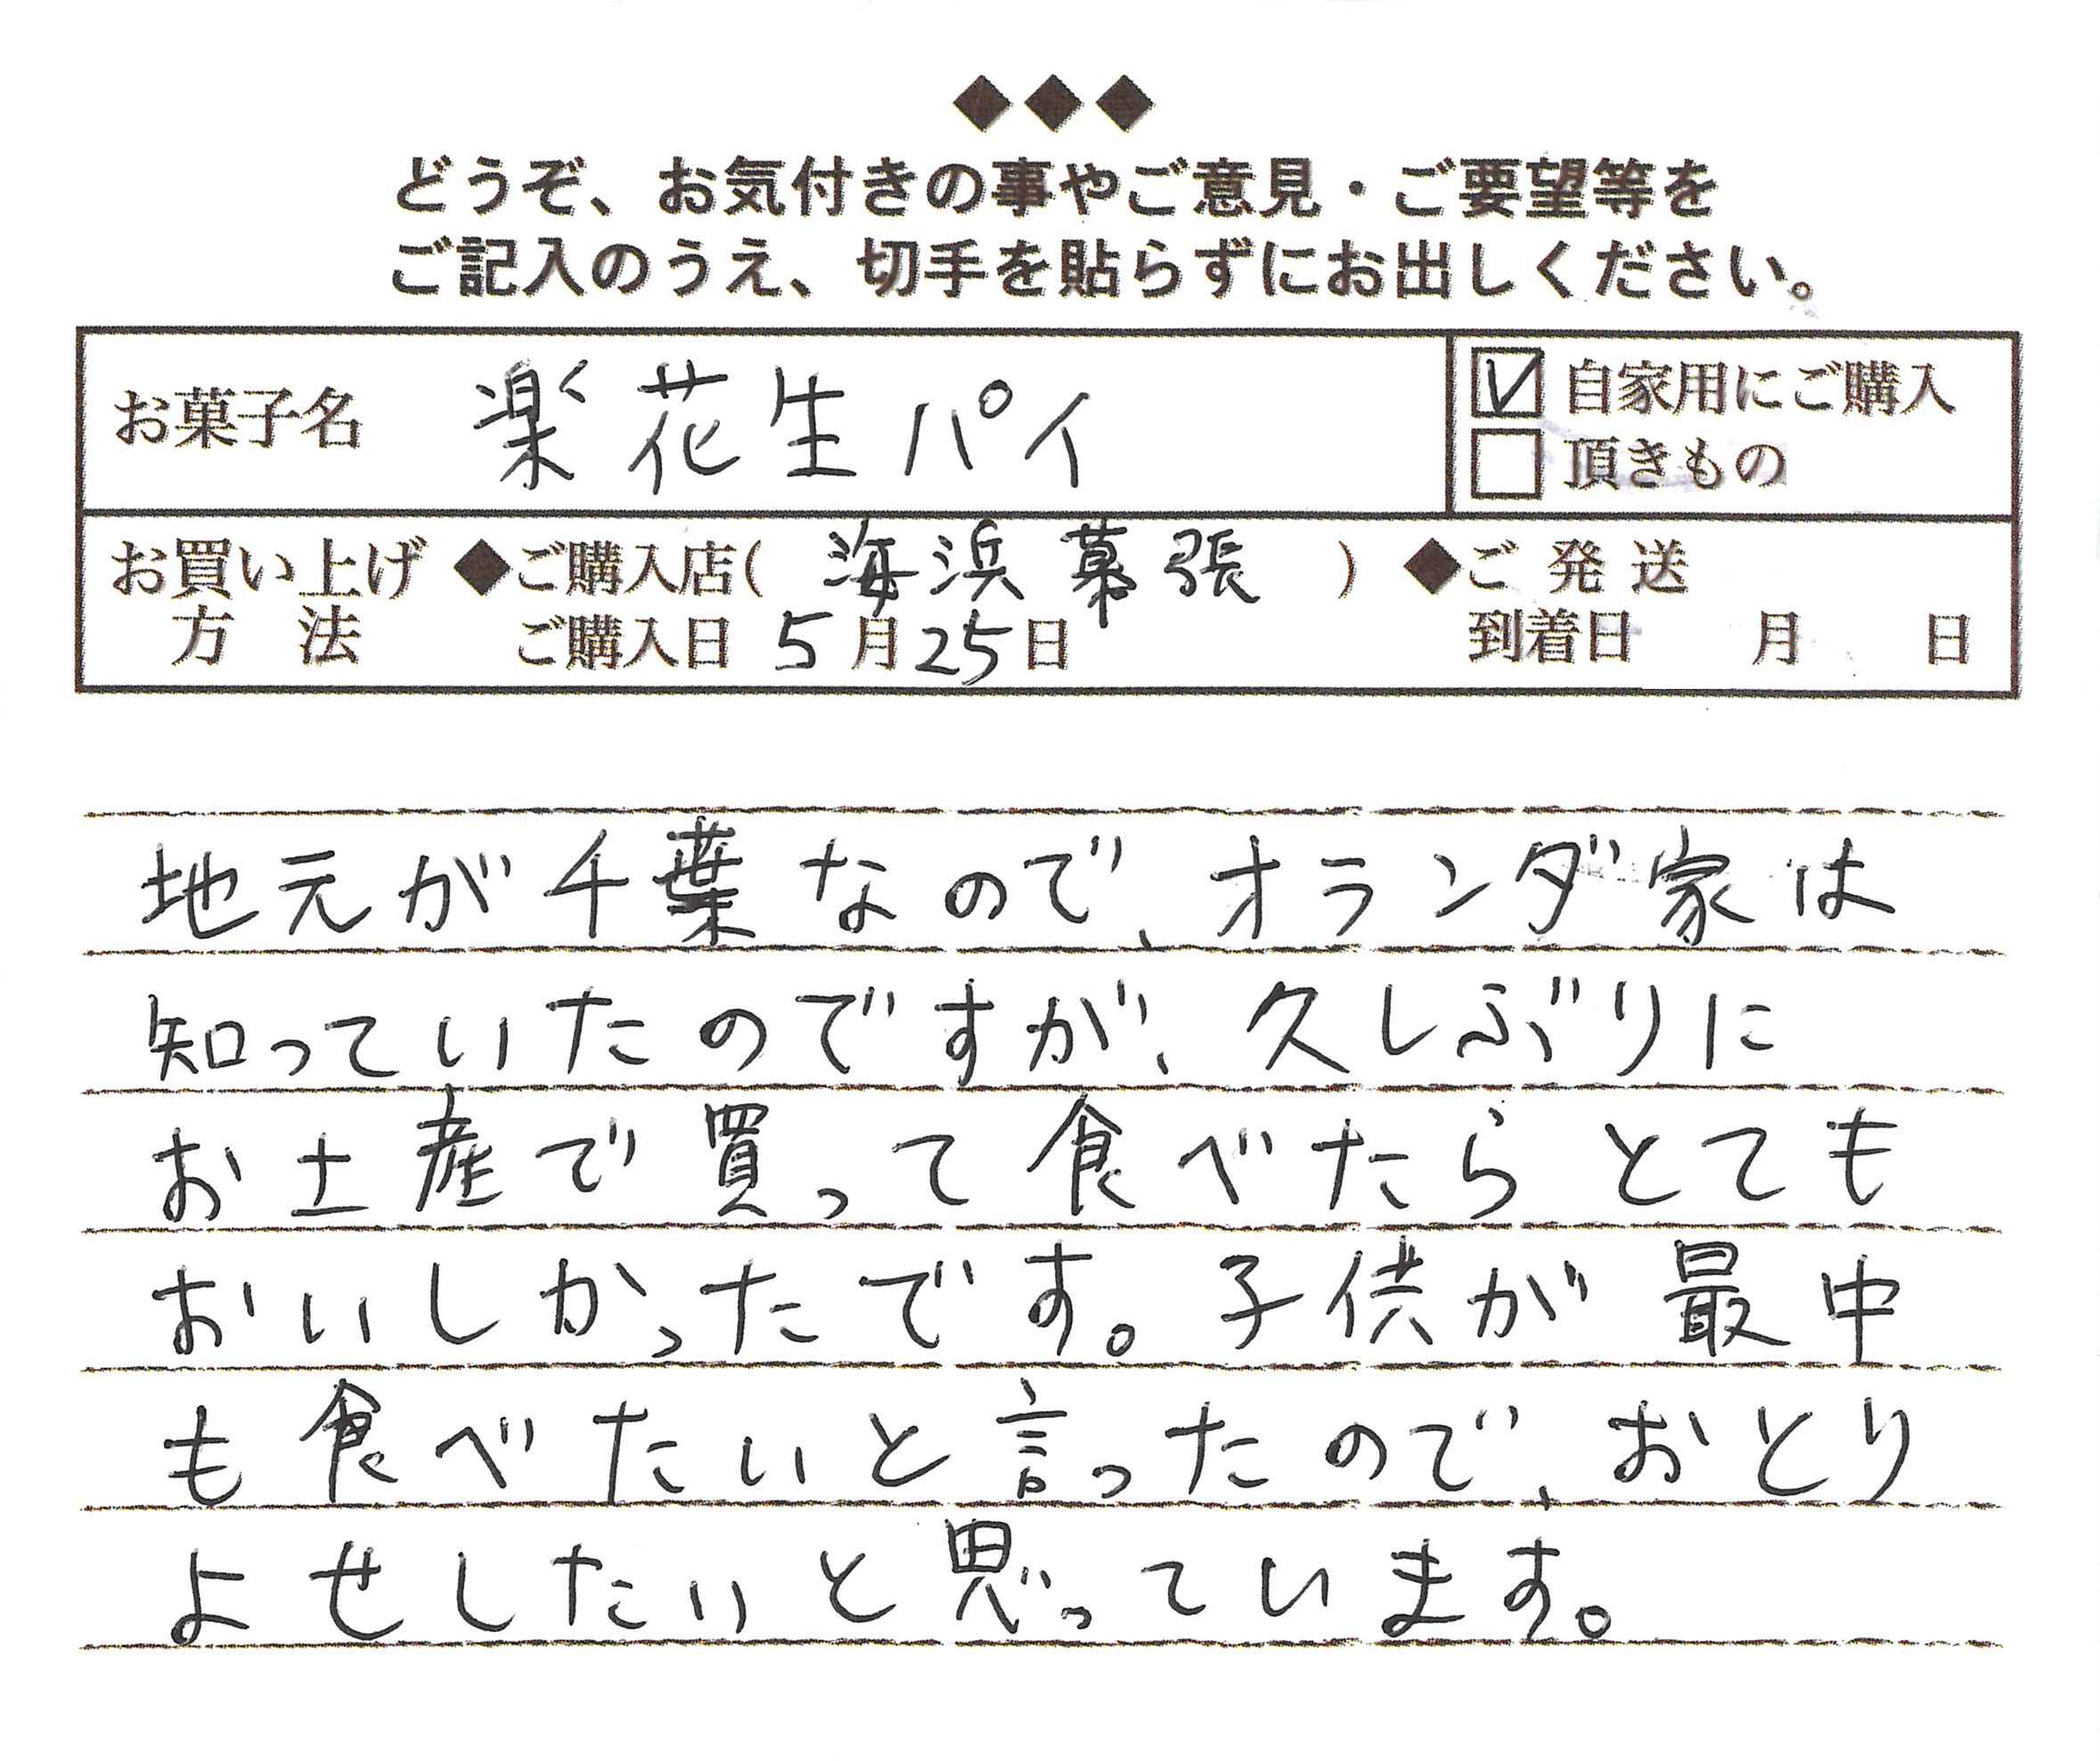 ◆◆◆
どうぞ、お気付きの事やご意見・ご要望等を
ご記入のうえ、切手を貼らずにお出しください。
お菓子名 楽花生パイ
☑自家用にご購入
□頂きもの
お買い上げ方法 ◆ご購入店(海浜幕張) ◆ご発送
ご購入日 5月25日 到着日 月 日
地元が千葉なので、オランダ家は
知っていたのですが、久しぶりに
お土産で買って食べたらとても
おいしかったです。子供が最中
も食べたいと言ったので、おとり
よせしたいと思っています。